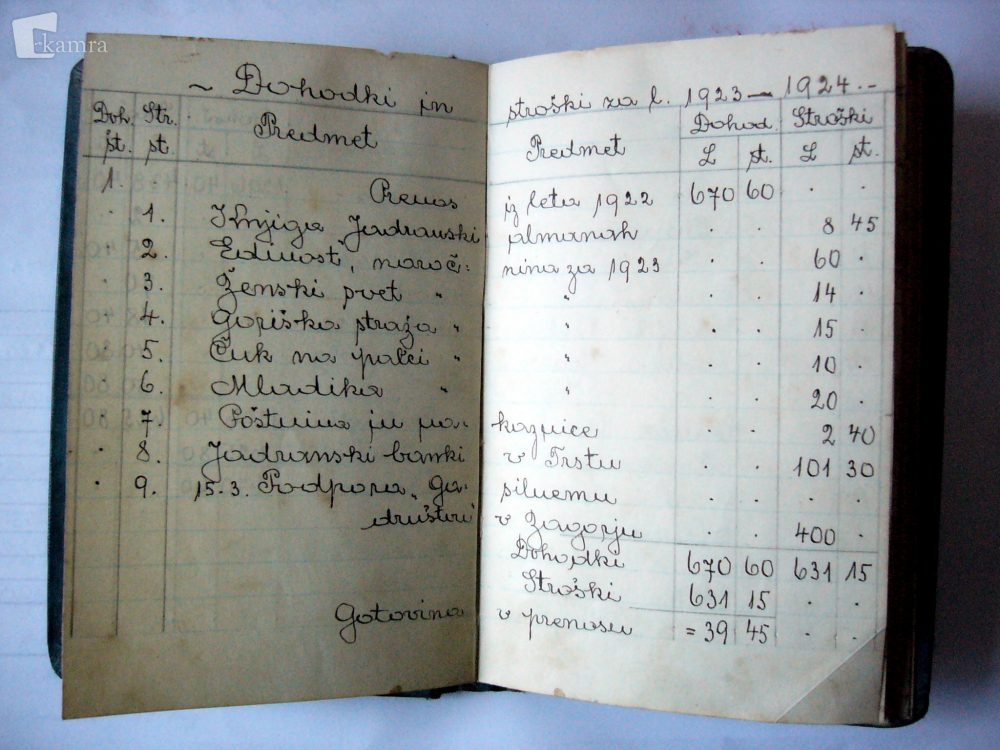 kamra
~ Dohodki in stroški za l. 1923 — 1924. -
Doh. Str. Predmet Predmet Dohod. Stroški
št. st. L st. L st.
1. Prenos iz leta 1922 670 60 . .
. 1. Knjiga Jadranski almanah . . 8 45
. 2. Edinost, naroč= nina za 1923 . . 60 .
. 3. Ženski svet " " . . 14 .
. 4. Goriška straža " " . . 15 .
. 5. Čuk na palci " " . . 10 .
. 6. Mladika " " . . 20 .
. 7. Poštnina in na- kaznice . . 2 40
. 8. Jadranski banki v Trstu . . 101 30
. 9. 15.-3. Podpora „Ga- silnemu . . . .
društvu" v Zagorju . . 400 .
Dohodki 670 60 631 15
Stroški 631 15 . .
Gotovina v prenosu = 39 45 . .